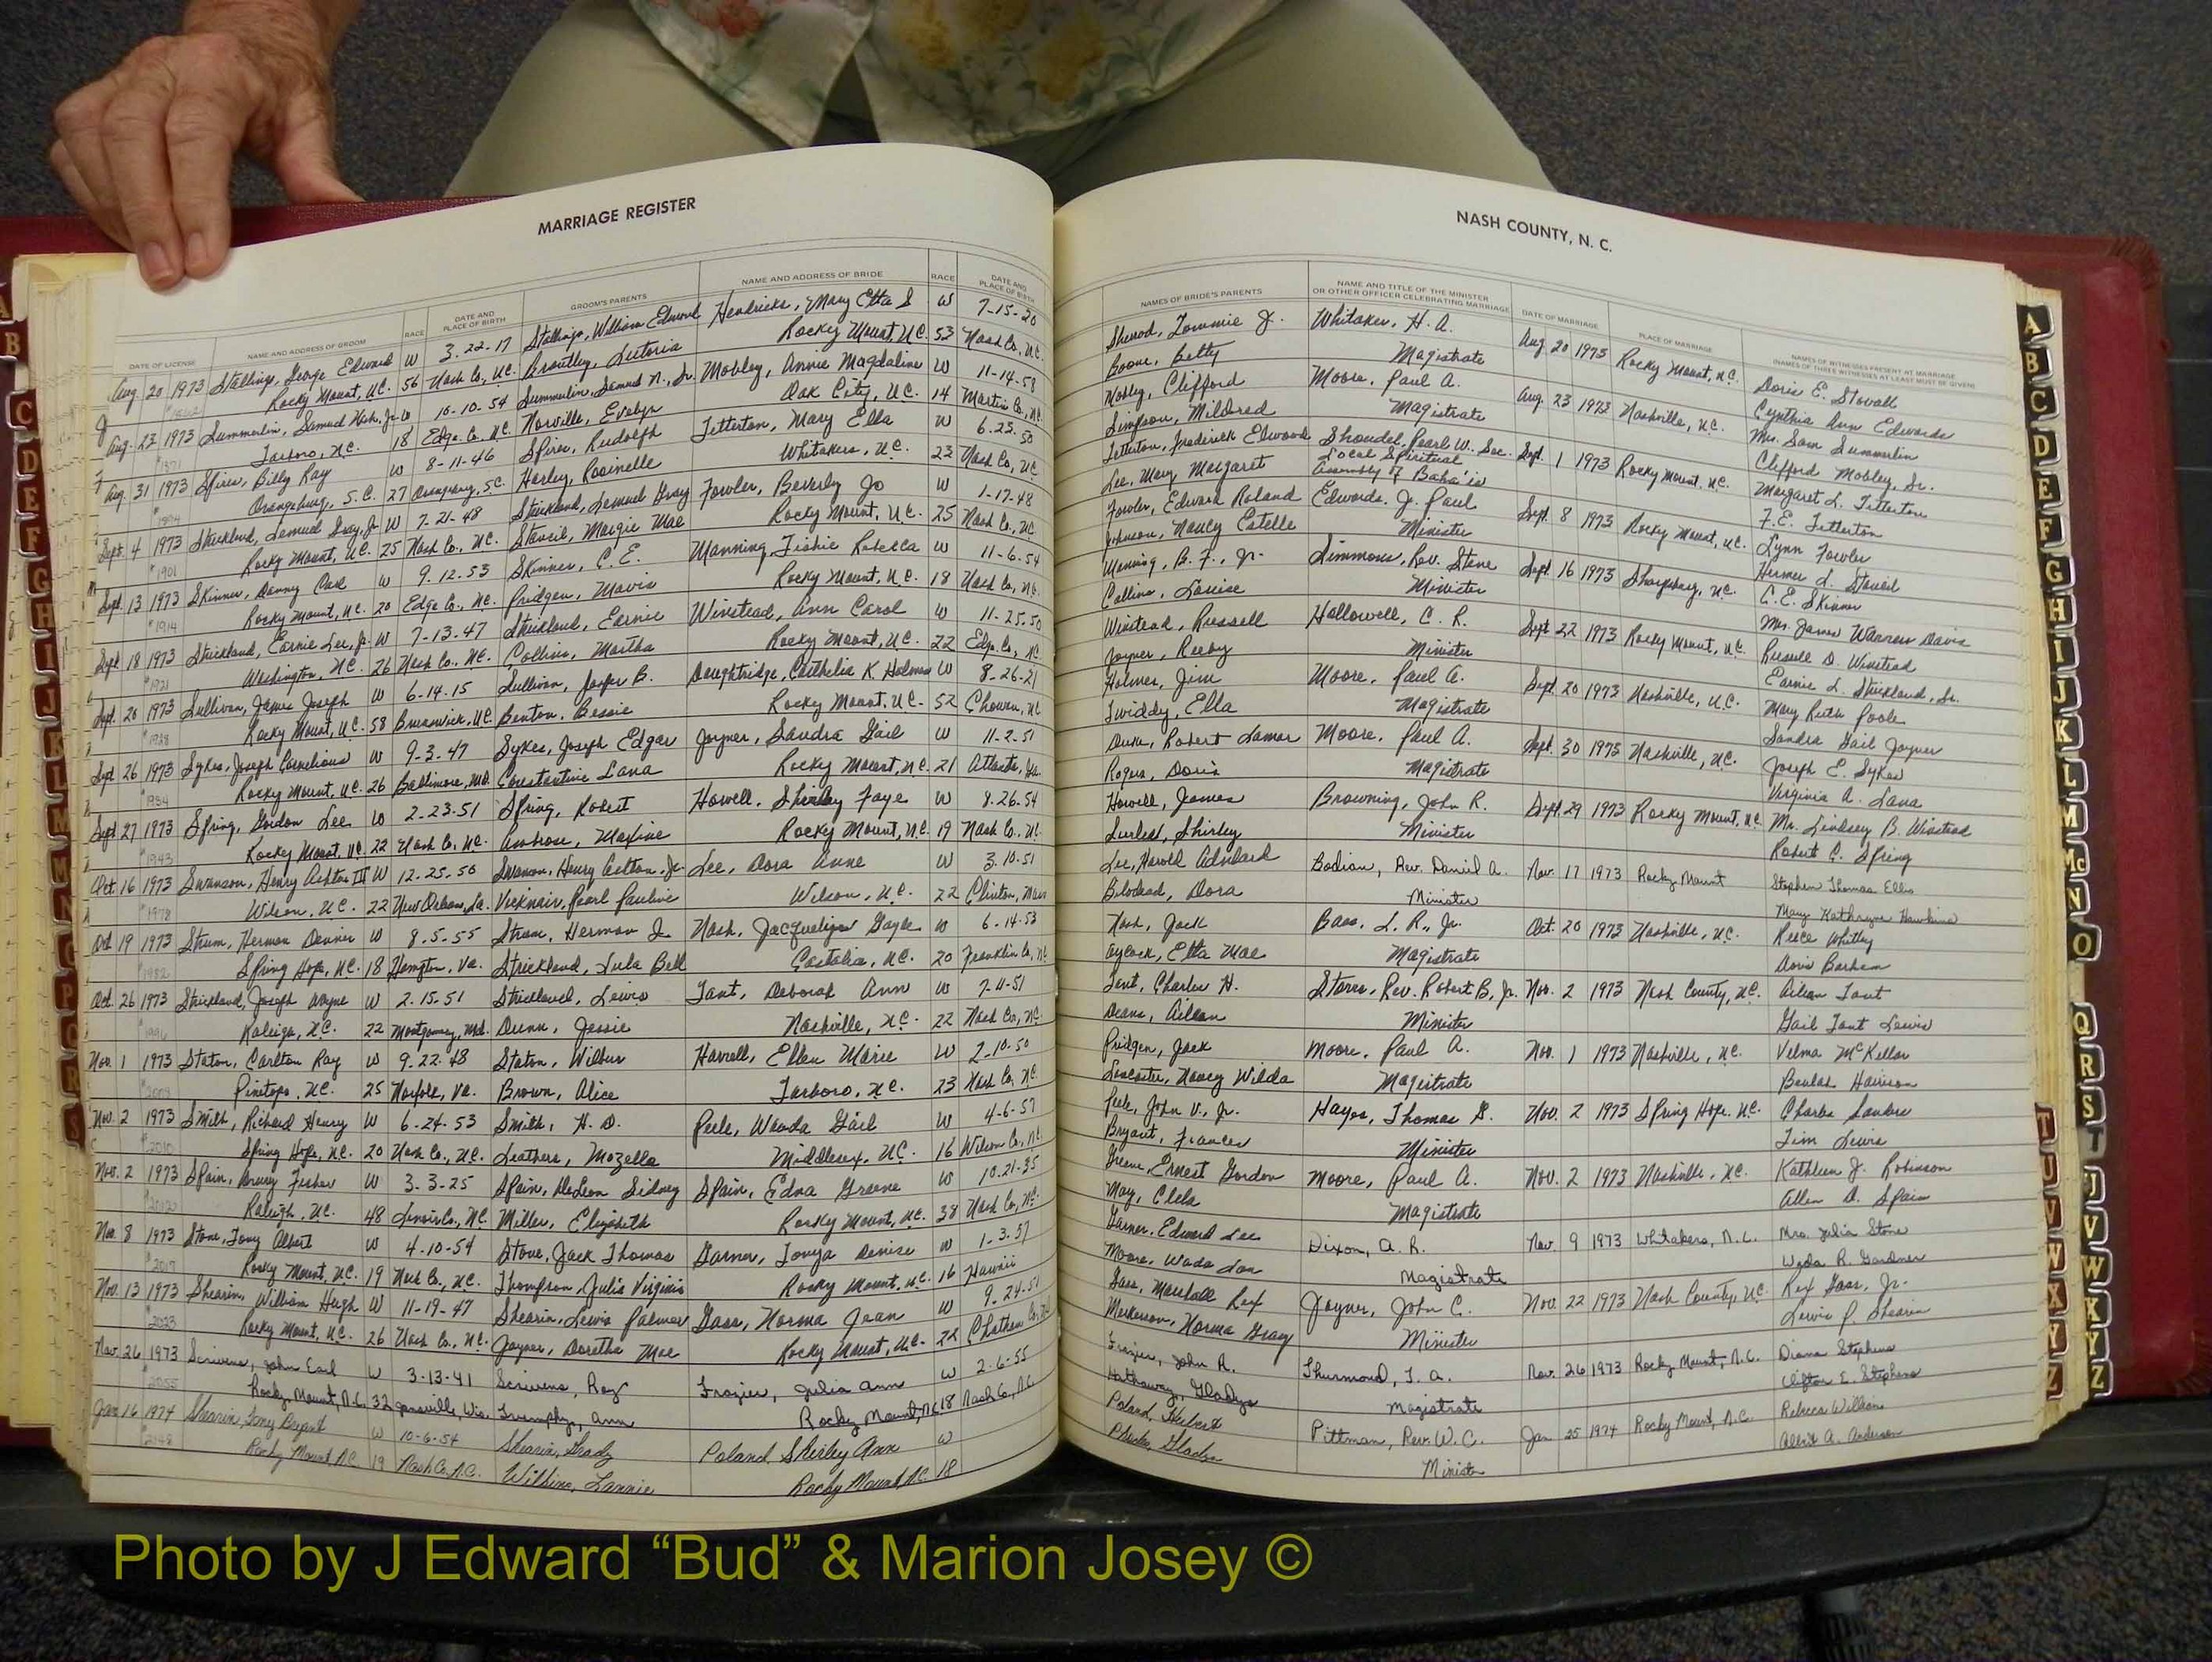 MARRIAGE REGISTER
DATE OF LICENSE NAME AND ADDRESS OF GROOM RACE DATE AND PLACE OF BIRTH GROOM'S PARENTS NAME AND ADDRESS OF BRIDE RACE DATE AND PLACE OF BIRTH
Aug 20 1973 Stallings, George Edward W 3.22.17 Stallings, William Edward Hendricks, Mary Etta S W 7-15-20
Rocky Mount, N.C. 56 Nash Co., N.C. Brantley, Luteria Rocky Mount, N.C. 53 Nash Co., N.C.
Aug. 23 1973 Summerlin, Samuel Jr. W 10-10-54 Summerlin, Samuel N., Sr. Mobley, Annie Magdaline W 11-14-58
Tarboro, N.C. 18 Edge. Co., N.C. Norville, Evelyn Oak City, N.C. 14 Martin Co., N.C.
Aug. 31 1973 Spires, Billy Ray W 8-11-46 Spires, Rudolph Tetterton, Mary Ella W 6.25.50
Orangeburg, S.C. 27 Orangeburg, S.C. Harley, Whitakers, N.C. 23 Nash Co., N.C.
Sept. 4 1973 Strickland, Lemuel Gray, Jr. W 7-21-48 Strickland, Lemuel Gray Fowler, Beverly Jo W 1-17-48
Rocky Mount, N.C. 25 Nash Co., N.C. Margie Mae Rocky Mount, N.C. 25 Nash Co., N.C.
Sept. 13 1973 Skinner, Danny Carl W 9.12.53 Skinner, C.E. Manning, Rebecca W 11-6-54
Rocky Mount, N.C. 20 Edge Co., N.C. Pridgen, Mavis Rocky Mount, N.C. 18 Nash Co., N.C.
Sept 18 1973 Strickland, Earnie Lee, Jr. W 7-13-47 Strickland, Earnie Winstead, Ann Carol W 11-25.50
Washington, N.C. 26 Nash Co., N.C. Collins, Martha Rocky Mount, N.C. 22 Edge. Co., N.C.
Sept. 20 1973 Sullivan, James Joseph W 6-14-15 Sullivan, B. Daughtridge, K. Holmes W 8-26-21
Rocky Mount, N.C. 58 Brunswick, N.C. Benton, Bessie Rocky Mount, N.C. 52 Chowan, N.C.
Sept 26 1973 Sykes, Joseph Cornelious W 9-3-47 Sykes, Joseph Edgar Joyner, Sandra Gail W 11-2-51
Rocky Mount, N.C. 26 Baltimore, Md. Constantine Lana Rocky Mount, N.C. 21 Atlanta, Ga.
Sept 27 1973 Spring, Gordon Lee W 2-23-51 Spring, Robert Howell, Shirley Faye W 8.26.54
Rocky Mount, N.C. 22 Nash Co., N.C. Ambrose, Maxine Rocky Mount, N.C. 19 Nash Co., N.C.
Oct. 16 1973 Swanson, Henry Acton III W 12-25-50 Swanson, Henry Acton, Jr. Lee, Dora Anne W 3.10.51
Wilson, N.C. 22 New Orleans, La. Vicknair, Pearl Pauline Wilson, N.C. 22 Clinton, Mass
Oct 19 1973 Strum, Herman W 8.5.55 Strum, Herman Nash, Gayle W 6-14-53
Spring Hope, N.C. 18 Hampton, Va. Strickland, Lula Bell Castalia, N.C. 20 Franklin Co., N.C.
Oct. 26 1973 Strickland, Joseph Wayne W 2-15-51 Strickland, Lewis Tant, Deborah Ann W 7-11-51
Raleigh, N.C. 22 Montgomery, Md. Dunn, Jessie Nashville, N.C. 22 Nash Co., N.C.
Nov. 1 1973 Staton, Carlton Ray W 9.22.48 Staton, Wilbur Harrell, Ellen Marie W 2-10-50
Pinetops, N.C. 25 Norfolk, Va. Brown, Alice Tarboro, N.C. 23 Nash Co., N.C.
Nov. 2 1973 Smith, Richard Henry W 6-24-53 Smith, H. D. Peele, Wanda Gail W 4-6-57
Spring Hope, N.C. 20 Nash Co., N.C. Leathers, Mozella Middlesex, N.C. 16 Wilson Co., N.C.
Nov. 2 1973 Spain, Fisher W 3-3-25 Spain, DeLeon Sidney Spain, Edna Greene W 10-21-35
Raleigh, N.C. 48 Lenoir Co., N.C. Miller, Elizabeth Rocky Mount, N.C. 38 Nash Co., N.C.
Nov. 8 1973 Stone, Tony Albert W 4-10-54 Stone, Jack Thomas Garner, Tonya Denise W 1-3-57
Rocky Mount, N.C. 19 Nash Co., N.C. Thompson, Julia Virginia Rocky Mount, N.C. 16 Hawaii
Nov. 13 1973 Shearin, William Hugh W 11-19-47 Shearin, Lewis Palmer Gass, Norma Jean W 9-24-51
Rocky Mount, N.C. 26 Nash Co., N.C. Joyner, Doretha Mae Rocky Mount, N.C. 22 Chatham Co.
Nov. 26 1973 Scrivens, John Earl W 3-13-41 Scrivens, Roy Frazier, Julia Ann W 2-6-55
Rocky Mount, N.C. 32 Janesville, Wis. Trumphy, Ann Rocky Mount, N.C. 18 Nash Co., N.C.
Jan 16 1974 Shearin, Tony Bryant W 10-6-54 Shearin, Grady Poland, Shirley Ann W
Rocky Mount, N.C. 19 Nash Co., N.C. Wilkins, Lannie Rocky Mount, N.C. 18
NASH COUNTY, N. C.
NAMES OF BRIDE'S PARENTS NAME AND TITLE OF THE MINISTER OR OTHER OFFICER CELEBRATING MARRIAGE DATE OF MARRIAGE PLACE OF MARRIAGE NAMES OF WITNESSES PRESENT AT MARRIAGE (NAMES OF THREE WITNESSES AT LEAST MUST BE GIVEN)
Sherod, Tommie J. Whitaker, H. A. Aug. 20 1973 Rocky Mount, N.C. Doris E. Stovall
Boone, Betty Magistrate Cynthia Ann Edwards
Mobley, Clifford Moore, Paul A. Aug. 23 1973 Nashville, N.C. Mrs. Sam Summerlin
Simpson, Mildred Magistrate Clifford Mobley, Sr.
Tetterton, Frederick Elwood Shoudel, Pearl W., Sec. Sept. 1 1973 Rocky Mount, N.C. Margaret L. Tetterton
Lee, Mary Margaret Local Spiritual Assembly of Baha'is F.E. Tetterton
Fowler, Edward Roland Edwards, J. Paul Sept. 8 1973 Rocky Mount, N.C. Lynn Fowler
Johnson, Nancy Estelle Minister
Manning, B. F., Jr. Simmons, Rev. Steve Sept. 16 1973 Sharpsburg, N.C. C. E. Skinner
Collins, Louise Minister Mrs. James Warren Davis
Winstead, Russell Hallowell, C. R. Sept 22 1973 Rocky Mount, N.C. Russell D. Winstead
Joyner, Minister Earnie L. Strickland, Sr.
Holmes, Jim Moore, Paul A. Sept. 20 1973 Nashville, N.C. Mary Ruth Poole
Twiddy, Ella Magistrate Sandra Gail Joyner
Duke, Robert Lamar Moore, Paul A. Sept. 30 1973 Nashville, N.C. Joseph E. Sykes
Rogers, Doris Magistrate Virginia A. Lana
Howell, James Browning, John R. Sept 29 1973 Rocky Mount, N.C. Mr. Lindsey B. Winstead
Shirley Minister Robert C. Spring
Lee, Harold Bodian, Rev. Daniel A. Nov. 17 1973 Rocky Mount Stephen Thomas Ellis
Dora Minister Mary Kathryne Hawkins
Nash, Jack Bass, L. R., Jr. Oct. 20 1973 Nashville, N.C. Reece Whitley
Aycock, Etta Mae Magistrate Doris Barham
Tant, Charles H. Starns, Rev. Robert B., Jr. Nov. 2 1973 Nash County, N.C. Aileen Tant
Deans, Aileen Minister Gail Tant Lewis
Pridgen, Jack Moore, Paul A. Nov. 1 1973 Nashville, N.C. Velma McKellar
Lancaster, Nancy Wilda Magistrate Beulah Harrison
Peele, John V., Jr. Hayes, Thomas G. Nov. 2 1973 Spring Hope, N.C. Charles
Bryant, Frances Minister Tim Lewis
Greene, Ernest Gordon Moore, Paul A. Nov. 2 1973 Nashville, N.C. Kathleen J. Robinson
May, Clela Magistrate Allen D. Spain
Garner, Edward Lee Dixon, A. R. Nov. 9 1973 Whitakers, N.C. Mrs. Julia Stone
Moore, Wada Lou Magistrate Wade R. Gardner
Gass, Marshall Rex Joyner, John C. Nov. 22 1973 Nash County, N.C. Rex Gass, Jr.
Norma Gray Minister Lewis P. Shearin
Frazier, John R. Thurmond, T. A. Nov. 26 1973 Rocky Mount, N.C. Diana Stephens
Hathaway, Gladys Magistrate Clifton E. Stephens
Poland, Hubert Pittman, Rev. W. C. Jan 25 1974 Rocky Mount, N.C. Rebecca Williams
Gladys Minister Albert A. Anderson
A
B
C
D
E
F
G
H
I
J
K
L
M
Mc
N
O
P
Q
R
S
T
U
V
W
X
Y
Z
Photo by J Edward “Bud” & Marion Josey ©